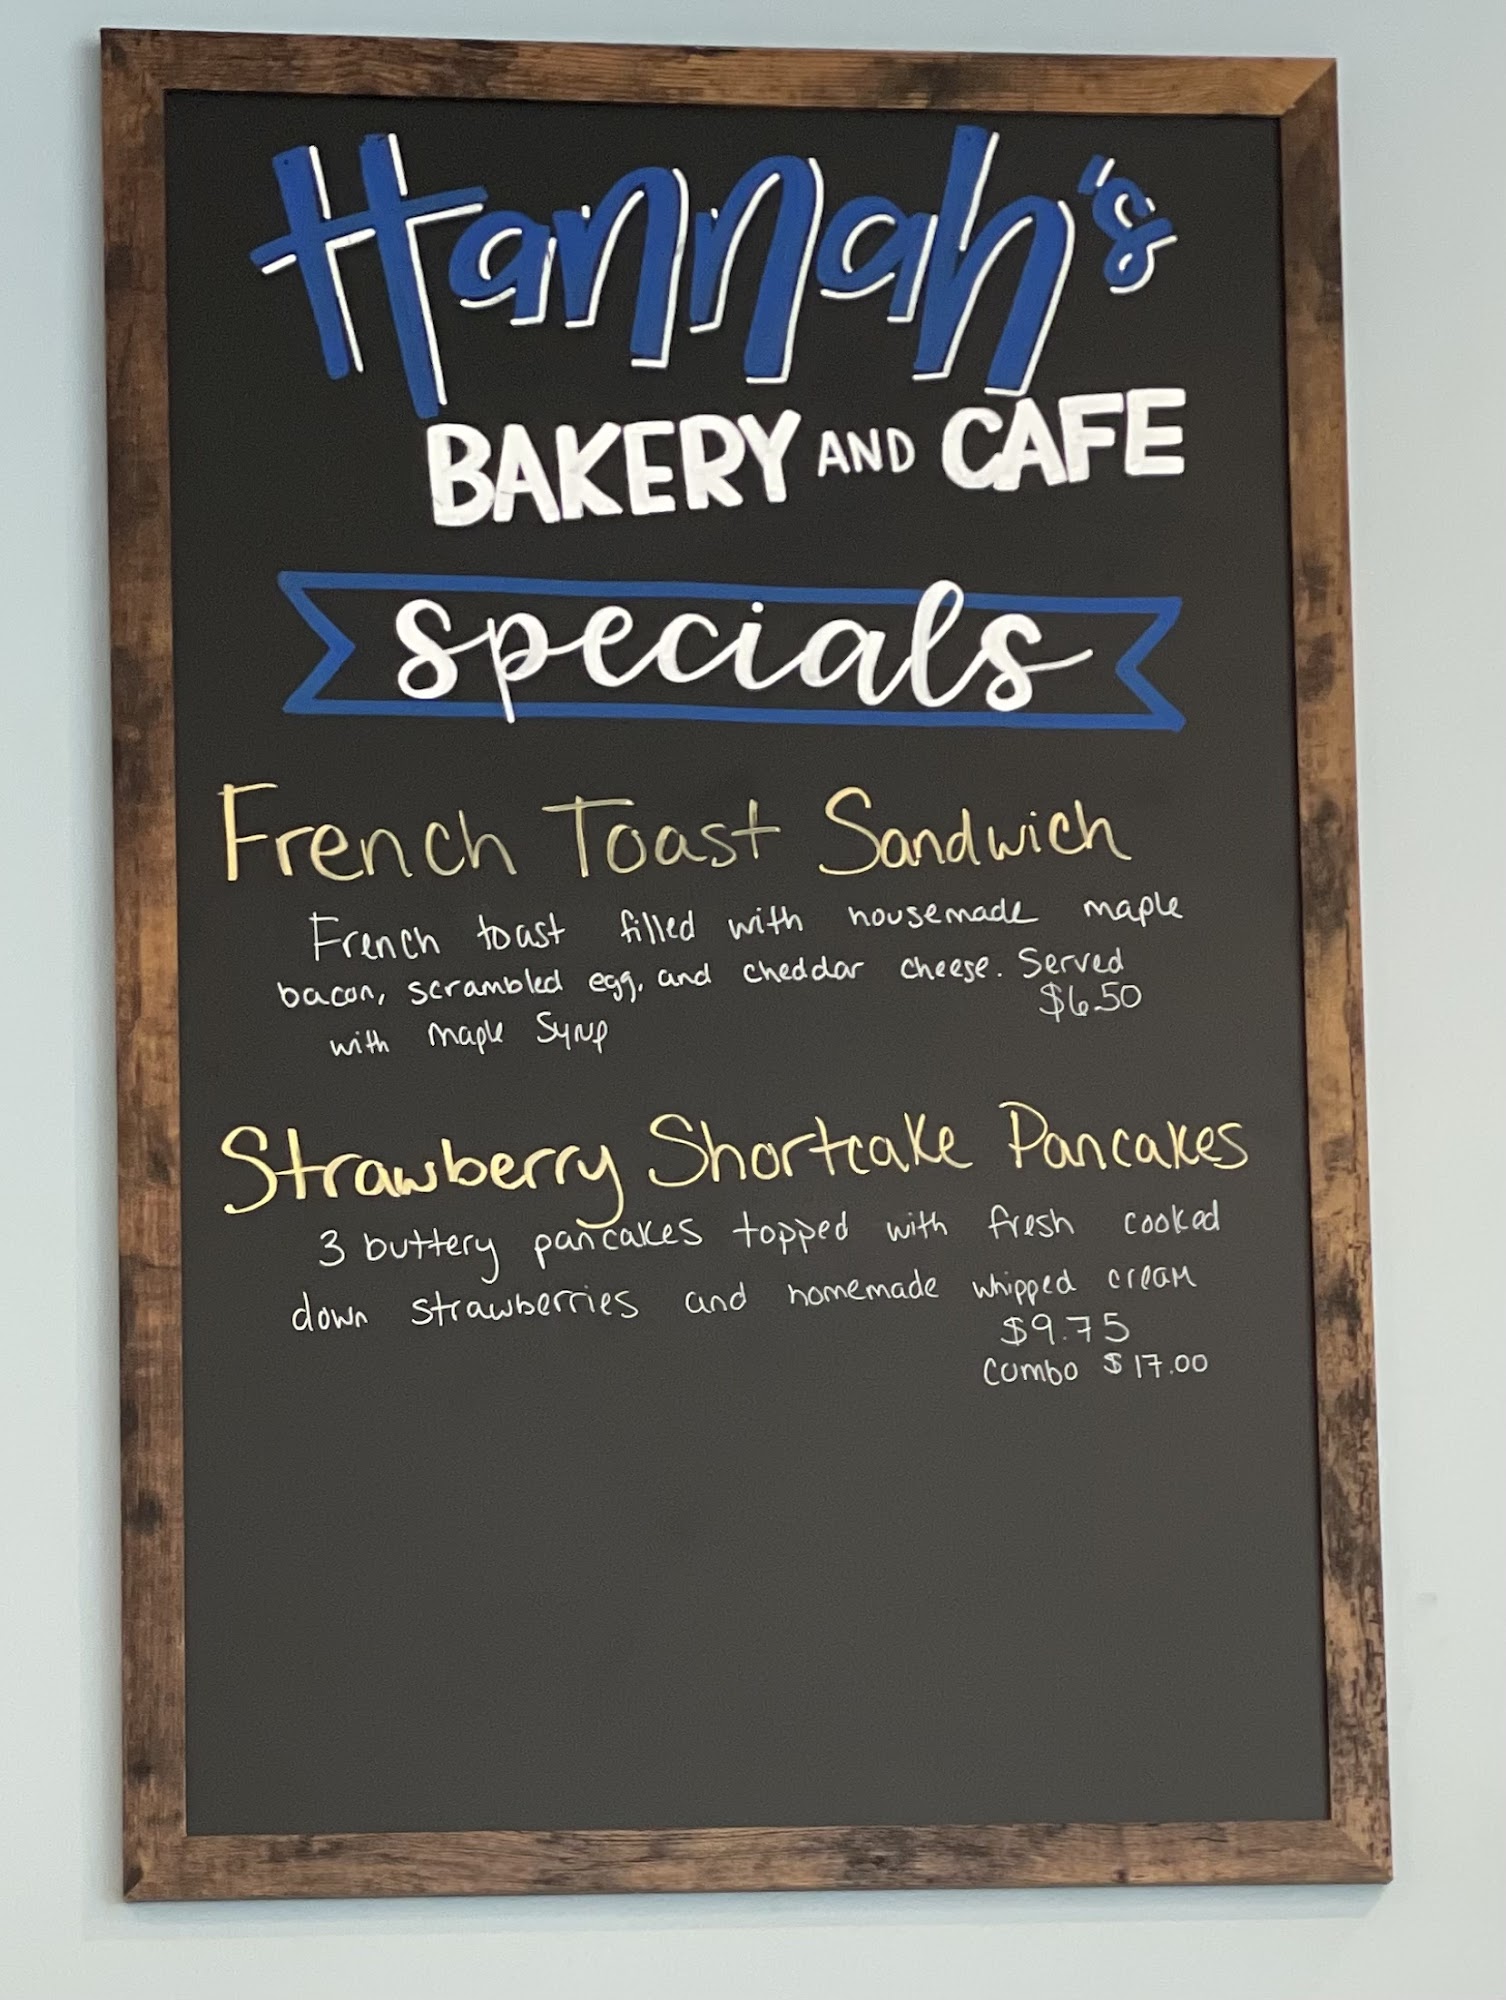 Hannah's
BAKERY AND CAFE
specials
French Toast Sandwich
French toast filled with housemade maple
bacon, scrambled egg, and cheddar cheese. Served
$6.50
with maple syrup
Strawberry Shortcake Pancakes
3 buttery pancakes topped with fresh cooked
down strawberries and homemade whipped cream
$9.75
combo $17.00